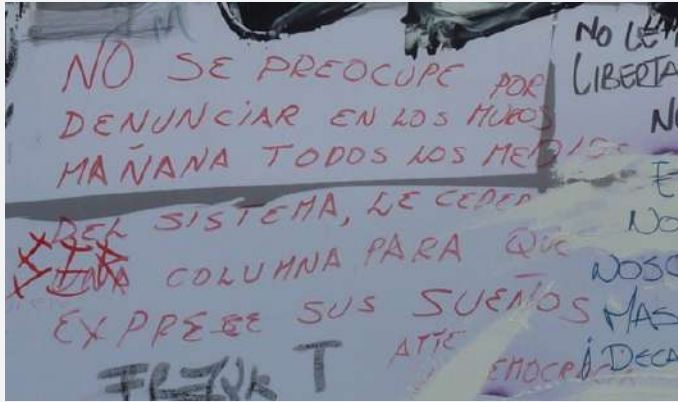 NO SE PREOCUPE POR
DENUNCIAR EN LOS MUROS
MAÑANA TODOS LOS MEDIOS
DEL SISTEMA, LE CEDEN
UNA COLUMNA PARA QUE
EXPRESE SUS SUEÑOS
ATTE
NO
LIBERTA
NO
E
NO
NOSO
MAS
¡DECA